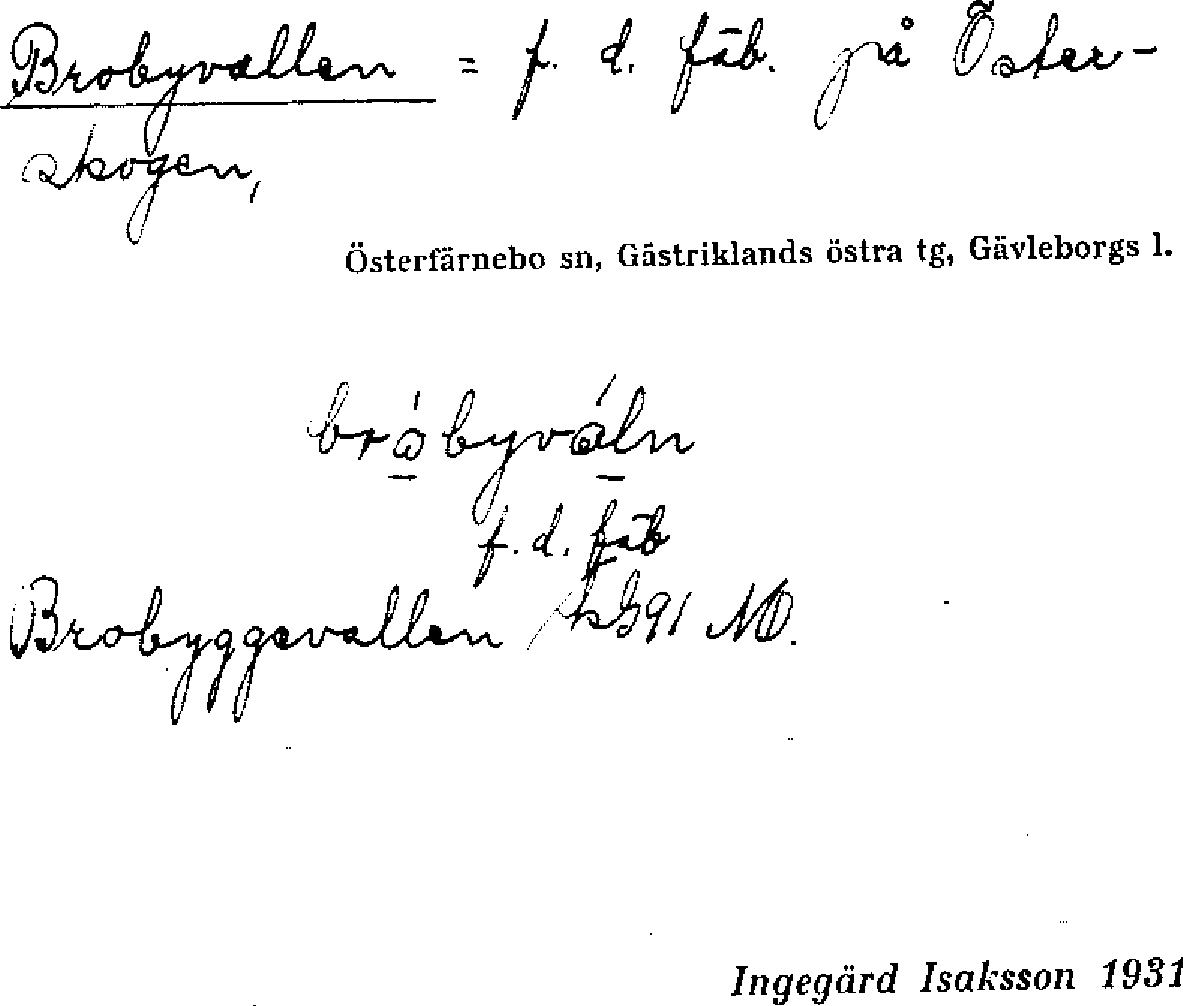 Brobyvallen = f. d. fäb. på Öster-
skogen,
Österfärnebo sn, Gästriklands östra tg, Gävleborgs l.
bròbyváln
f. d. fäb
Brobyggevallen
Ingegärd Isaksson 1931